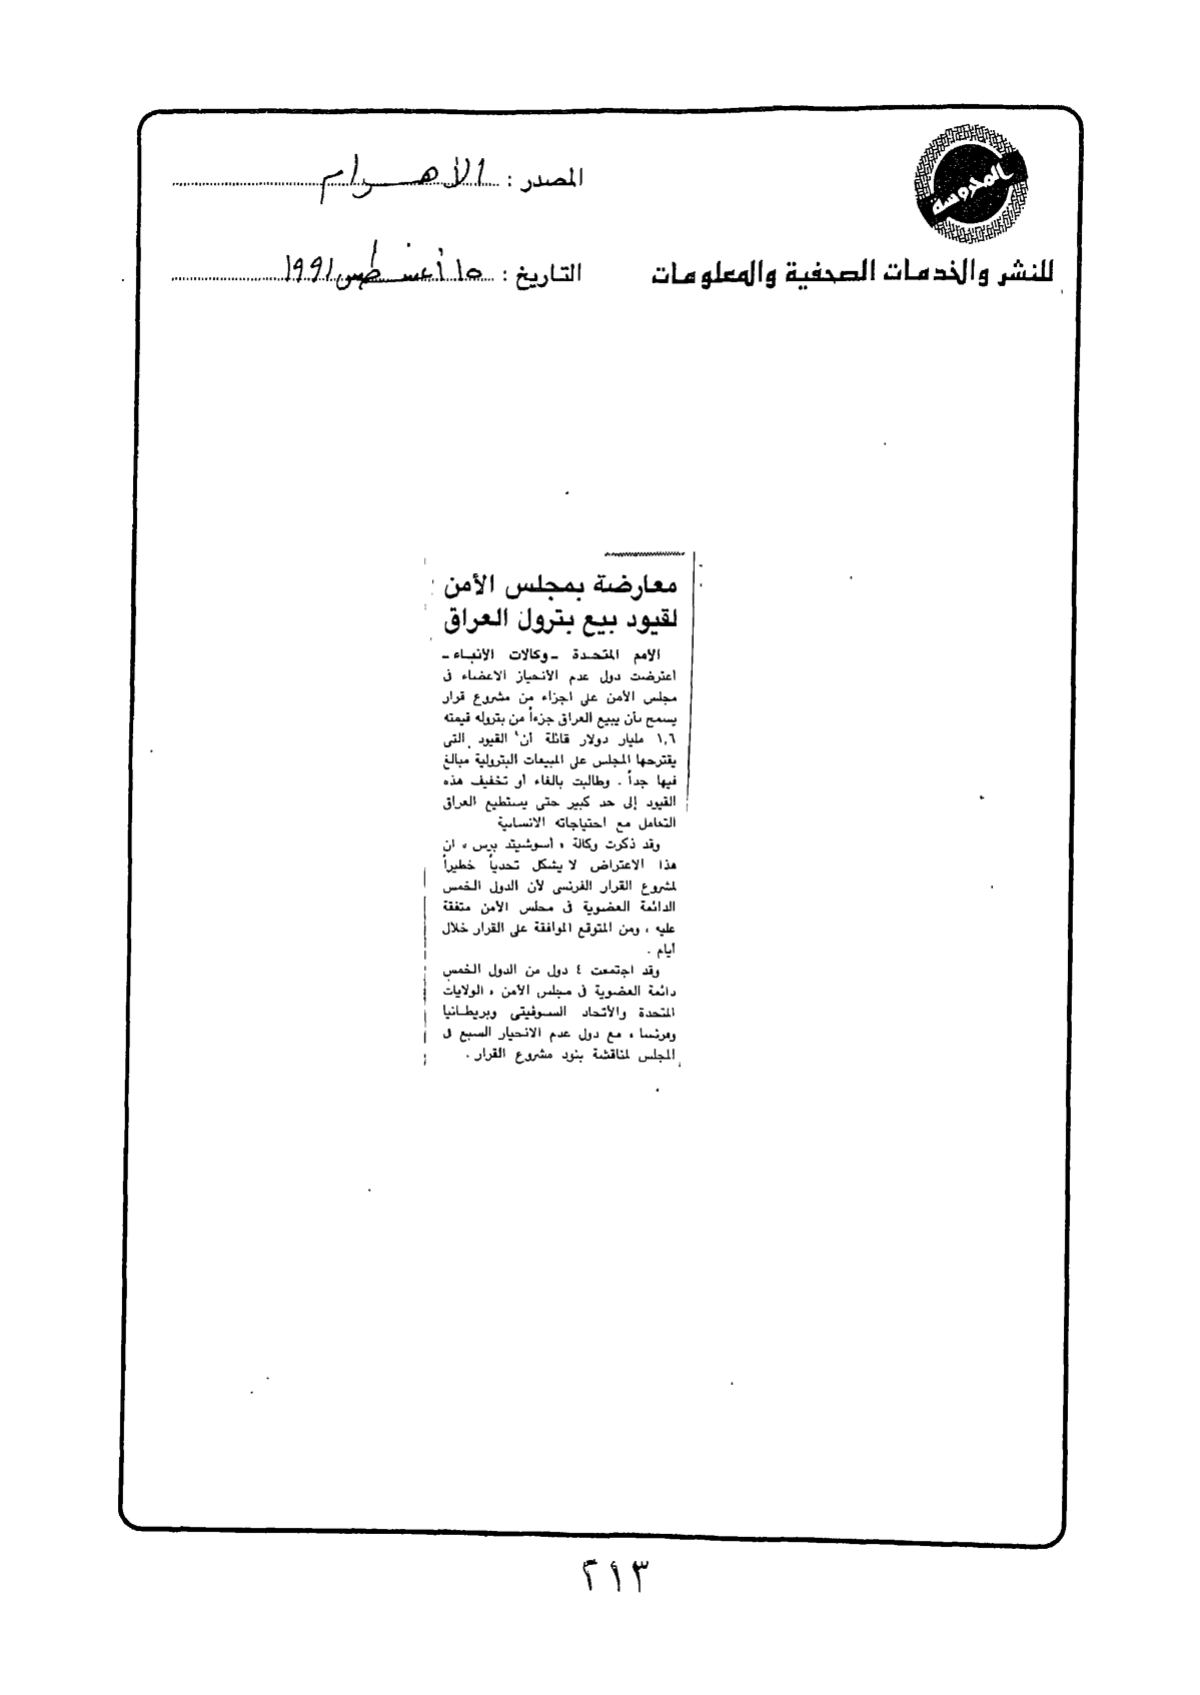 المحروسة
المصدر : الأهرام
للنشر والخدمات الصحفية والمعلومات
التاريخ : ١٥ أغسطس ١٩٩١
معارضة بمجلس الأمن
لقيود بيع بترول العراق
الأمم المتحدة - وكالات الأنباء -
اعترضت دول عدم الانحياز الاعضاء فى
مجلس الأمن على اجزاء من مشروع قرار
يسمح بأن يبيع العراق جزءاً من بتروله قيمته
١,٦ مليار دولار قائلة أن القيود التى
يقترحها المجلس على المبيعات البترولية مبالغ
فيها جداً . وطالبت بالغاء أو تخفيف هذه
القيود إلى حد كبير حتى يستطيع العراق
التعامل مع احتياجاته الانسانية
وقد ذكرت وكالة « أسوشيتد برس » ان
هذا الاعتراض لا يشكل تحدياً خطيراً
لمشروع القرار الفرنسى لأن الدول الخمس
الدائمة العضوية فى مجلس الأمن متفقة
عليه ، ومن المتوقع الموافقة على القرار خلال
أيام .
وقد اجتمعت ٤ دول من الدول الخمس
دائمة العضوية فى مجلس الأمن « الولايات
المتحدة والأتحاد السوفيتى وبريطانيا
وفرنسا » مع دول عدم الانحياز السبع فى
المجلس لمناقشة بنود مشروع القرار .
٢١٣